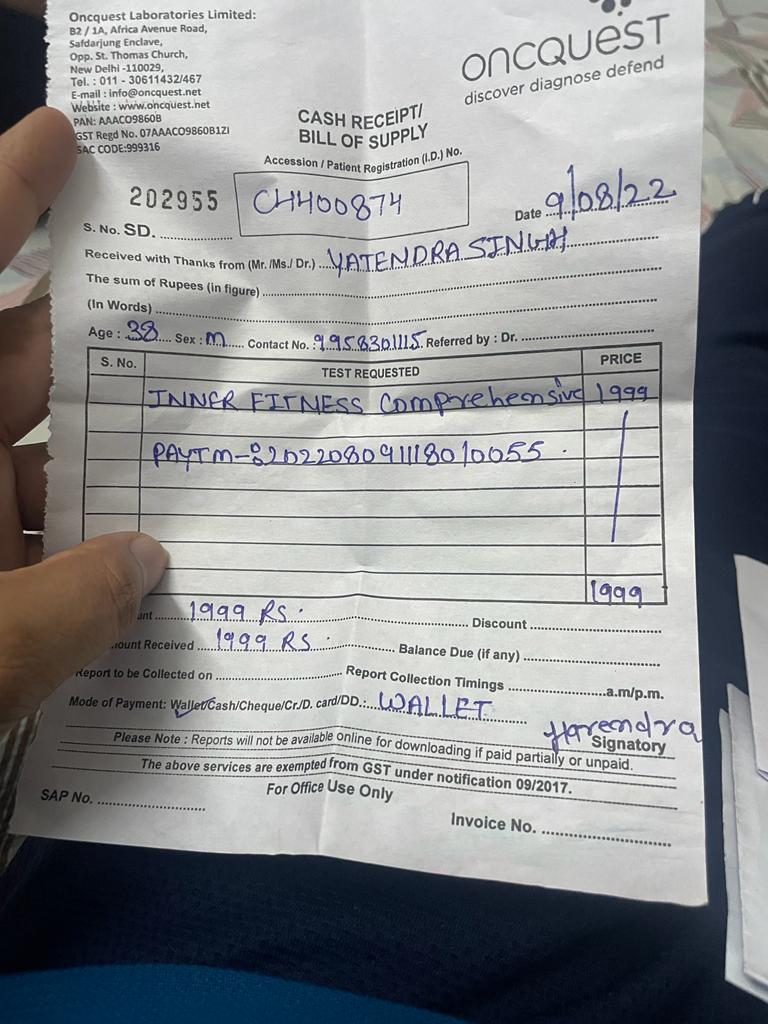 Oncquest Laboratories Limited:
B2 / 1A, Africa Avenue Road,
Safdarjung Enclave,
Opp. St. Thomas Church,
New Delhi -110029,
Tel. : 011 - 30611432/467
E-mail : info@oncquest.net
Website : www.oncquest.net
PAN: AAACO9860B
GST Regd No. 07AAACO9860B1ZI
SAC CODE:999316
oncquest
discover diagnose defend
CASH RECEIPT/
BILL OF SUPPLY
Accession / Patient Registration (I.D.) No.
202955
CH400874
Date 9/08/22
S. No. SD.
Received with Thanks from (Mr. /Ms./ Dr.) YATENDRA SINGH
The sum of Rupees (in figure)
(In Words)
Age : 38 Sex : M Contact No. : 9958301115 Referred by : Dr.
S. No. TEST REQUESTED PRICE
INNER FITNESS Comprehensive 1999
PAYTM-:202208091118010055
1999
unt 1999 RS. Discount
mount Received 1999 RS. Balance Due (if any)
Report to be Collected on Report Collection Timings a.m/p.m.
Mode of Payment: Wallet/Cash/Cheque/Cr./D. card/DD.: WALLET
Harendra
Signatory
Please Note : Reports will not be available online for downloading if paid partially or unpaid.
The above services are exempted from GST under notification 09/2017.
For Office Use Only
SAP No. Invoice No.